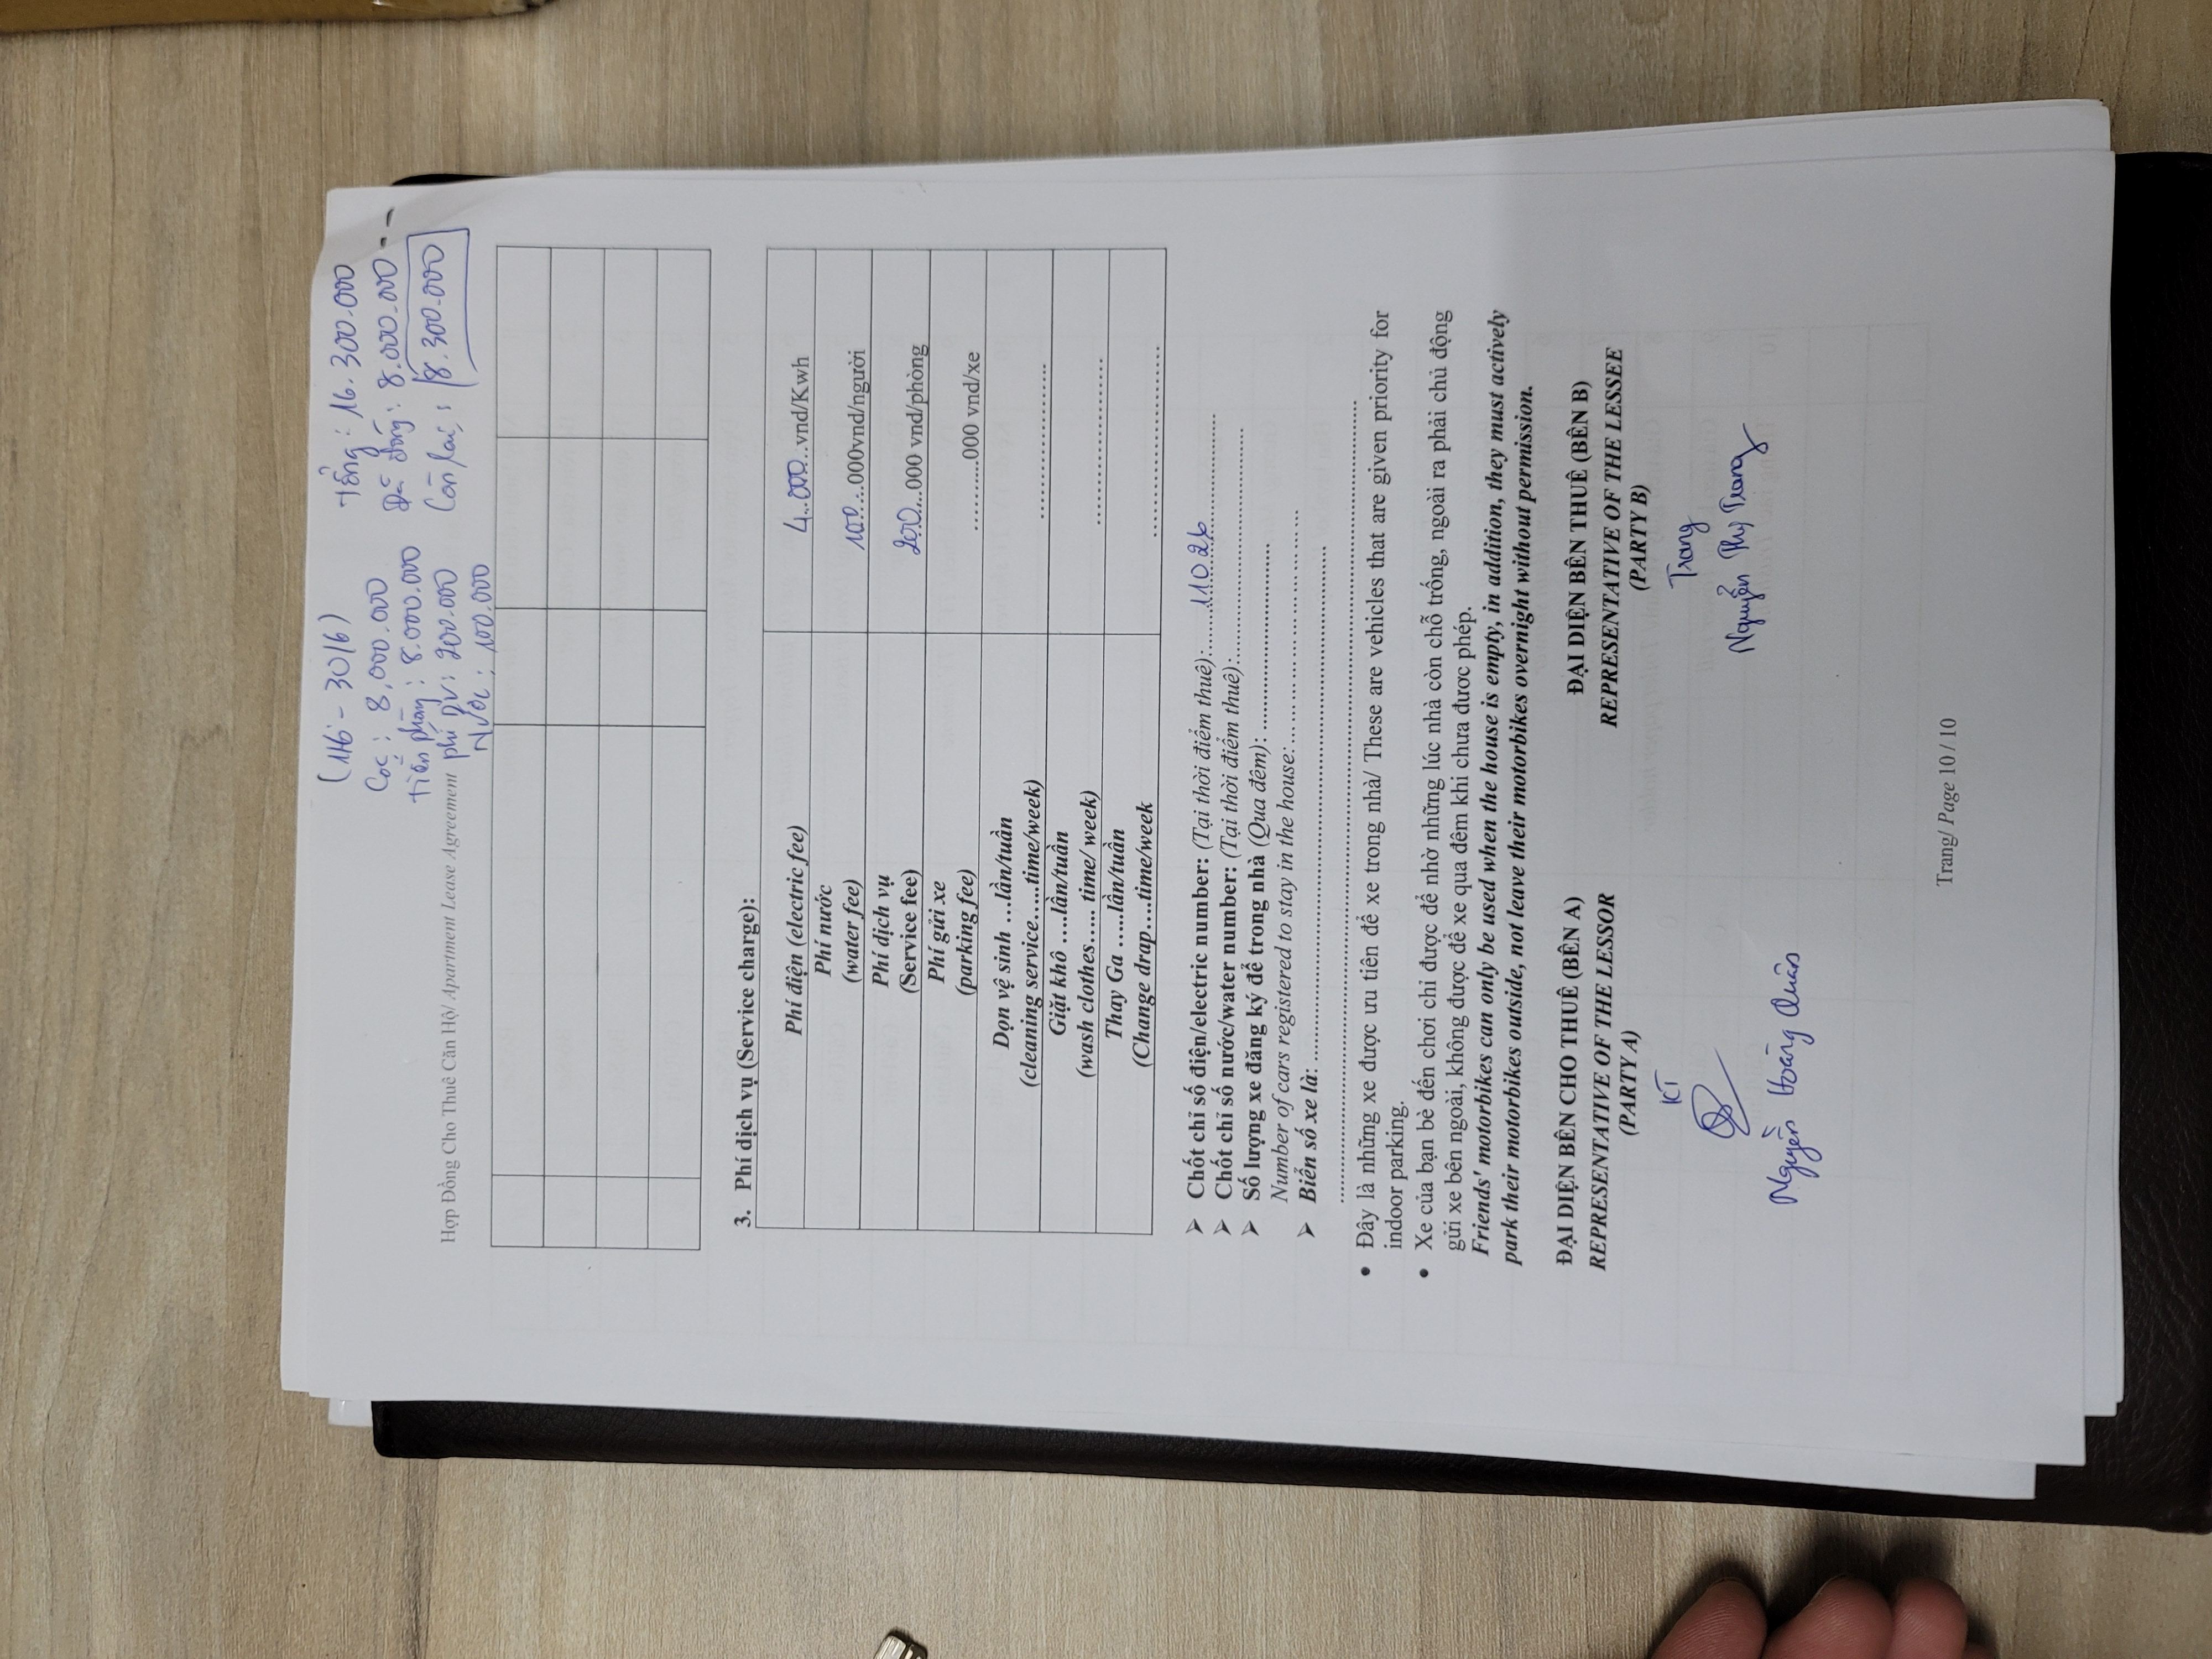 (1/6 - 30/6)
Cọc : 8,000.000
Tiền phòng : 8.000.000
phí DV : 200.000
Nước : 100.000
Tổng : 16.300.000
Đã đóng : 8.000.000
Còn lại : 8.300.000
Hợp Đồng Cho Thuê Căn Hộ/ Apartment Lease Agreement
3. Phí dịch vụ (Service charge):
Phí điện (electric fee) 4.000...vnd/Kwh
Phí nước
(water fee) 100...000vnd/người
Phí dịch vụ
(Service fee) 200...000 vnd/phòng
Phí gửi xe
(parking fee) .........000 vnd/xe
Dọn vệ sinh ...lần/tuần
(cleaning service.....time/week) ........................
Giặt khô .....lần/tuần
(wash clothes..... time/ week) ........................
Thay Ga .....lần/tuần
(Change drap....time/week ............................
➢ Chốt chỉ số điện/electric number: (Tại thời điểm thuê):........11026................
➢ Chốt chỉ số nước/water number: (Tại thời điểm thuê):....................................
➢ Số lượng xe đăng ký để trong nhà (Qua đêm): ..............................
Number of cars registered to stay in the house:....................................
➢ Biển số xe là: ................................................................................
................................................................................................
• Đây là những xe được ưu tiên để xe trong nhà/ These are vehicles that are given priority for
indoor parking.
• Xe của bạn bè đến chơi chỉ được để nhờ những lúc nhà còn chỗ trống, ngoài ra phải chủ động
gửi xe bên ngoài, không được để xe qua đêm khi chưa được phép.
Friends' motorbikes can only be used when the house is empty, in addition, they must actively
park their motorbikes outside, not leave their motorbikes overnight without permission.
ĐẠI DIỆN BÊN CHO THUÊ (BÊN A)
REPRESENTATIVE OF THE LESSOR
(PARTY A)
KT
Nguyễn Hoàng Quân
ĐẠI DIỆN BÊN THUÊ (BÊN B)
REPRESENTATIVE OF THE LESSEE
(PARTY B)
Trang
Nguyễn Thị Trang
Trang/ Page 10 / 10